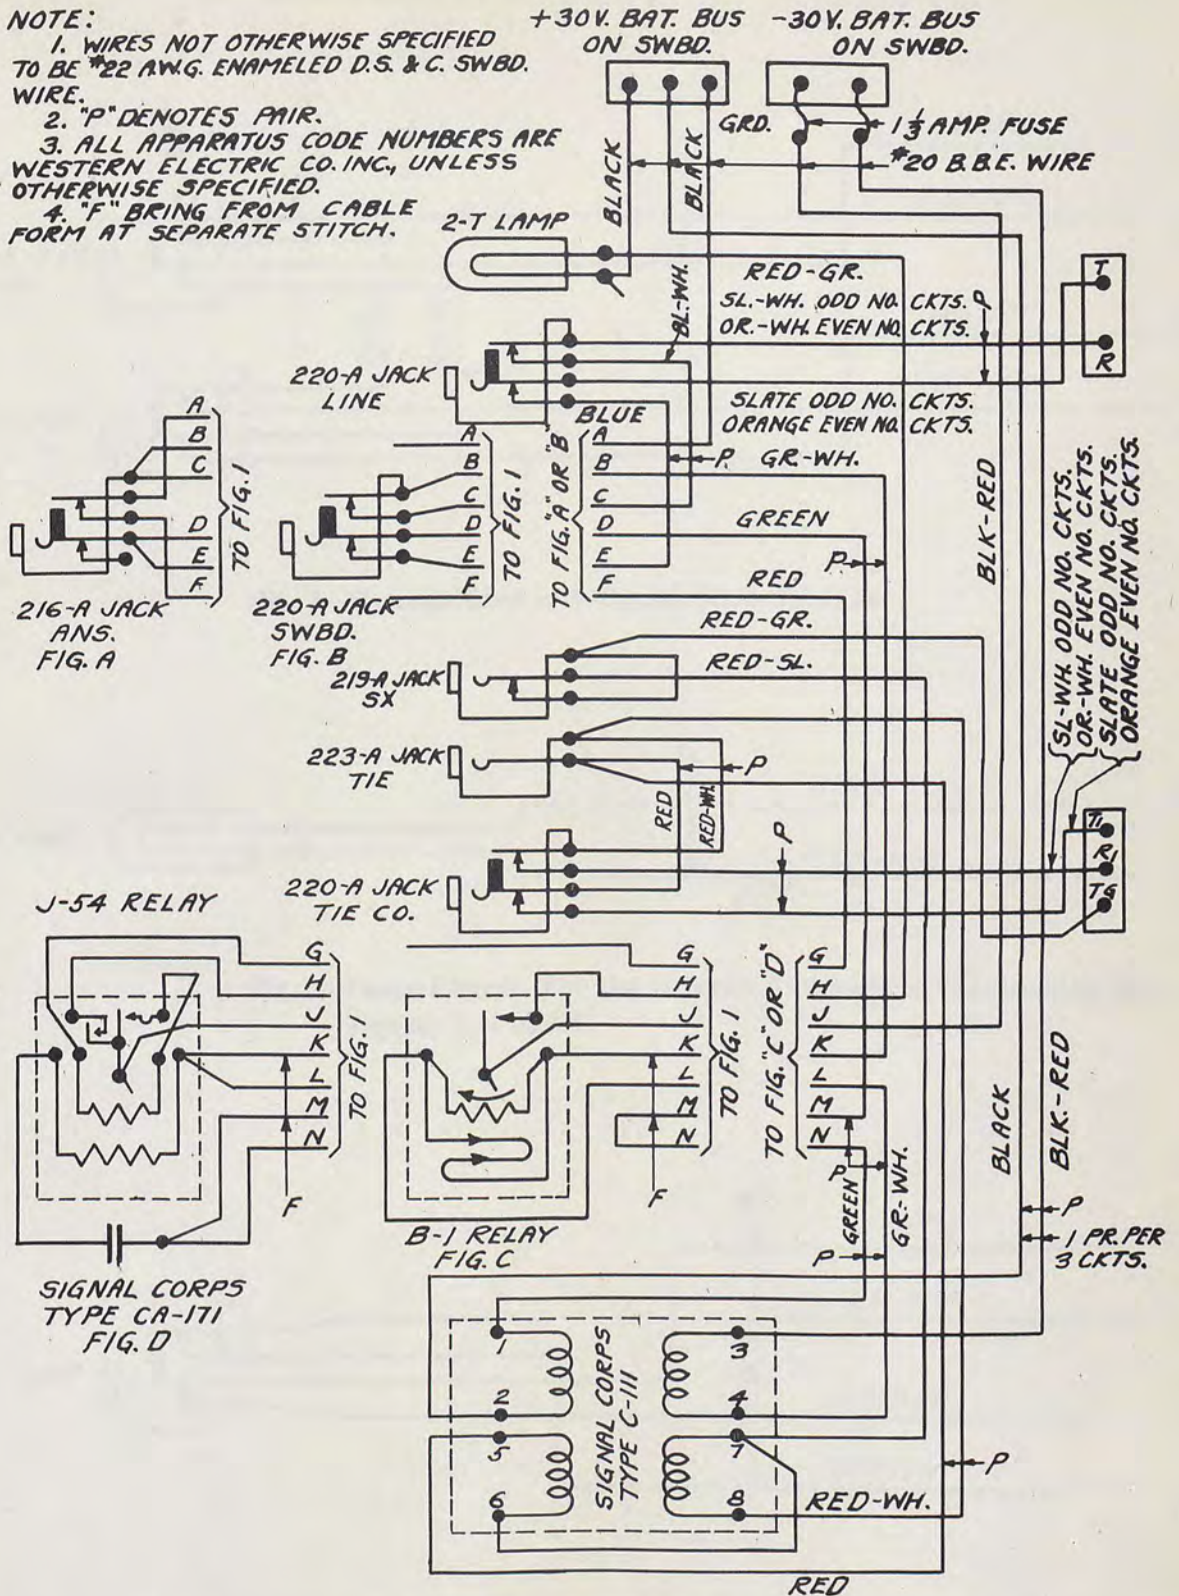 NOTE:
1. WIRES NOT OTHERWISE SPECIFIED
TO BE #22 A.W.G. ENAMELED D.S. & C. SWBD.
WIRE.
2. "P" DENOTES PAIR.
3. ALL APPARATUS CODE NUMBERS ARE
WESTERN ELECTRIC CO. INC., UNLESS
OTHERWISE SPECIFIED.
4. "F" BRING FROM CABLE
FORM AT SEPARATE STITCH.
+30V. BAT. BUS
ON SWBD.
-30V. BAT. BUS
ON SWBD.
GRD.
1 1/3 AMP. FUSE
#20 B.B.E. WIRE
BLACK
BLACK
2-T LAMP
RED-GR.
BL.-WH.
SL.-WH. ODD NO. CKTS.
OR.-WH. EVEN NO. CKTS.
P
T
R
220-A JACK
LINE
SLATE ODD NO. CKTS.
ORANGE EVEN NO. CKTS.
BLUE
P
GR.-WH.
A
B
C
D
E
F
TO FIG. 1
216-A JACK
ANS.
FIG. A
A
B
C
D
E
F
TO FIG. 1
220-A JACK
SWBD.
FIG. B
TO FIG. "A" OR "B"
A
B
C
D
E
F
GREEN
P
RED
BLK-RED
SL-WH. ODD NO. CKTS.
OR.-WH. EVEN NO. CKTS.
SLATE ODD NO. CKTS.
ORANGE EVEN NO. CKTS.
RED-GR.
219-A JACK
SX
RED-SL.
223-A JACK
TIE
P
RED
RED-WH.
P
220-A JACK
TIE CO.
T1
R1
TG
J-54 RELAY
G
H
J
K
L
M
N
TO FIG. 1
F
SIGNAL CORPS
TYPE CA-171
FIG. D
G
H
J
K
L
M
N
TO FIG. 1
F
B-1 RELAY
FIG. C
TO FIG. "C" OR "D"
G
H
J
K
L
M
N
P
GREEN
GR.-WH.
P
BLACK
BLK.-RED
P
1 PR. PER
3 CKTS.
1
2
5
6
SIGNAL CORPS
TYPE C-111
3
4
7
8
P
RED-WH.
RED